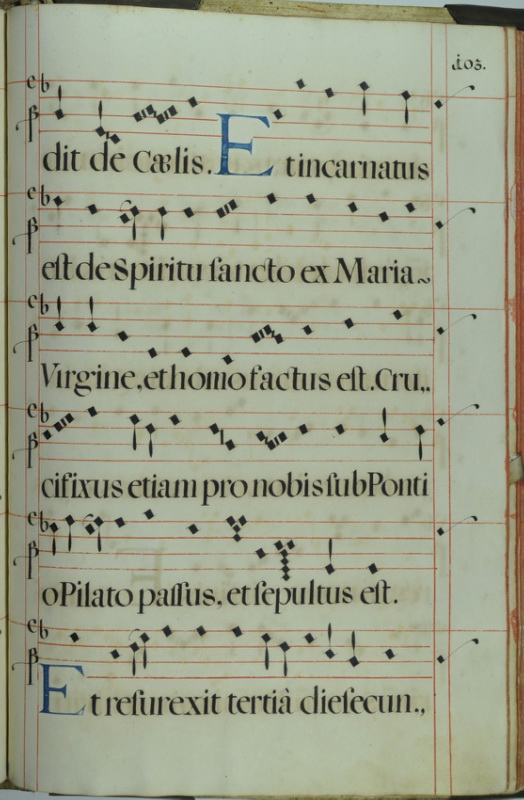 103.
dit de Cælis. Et incarnatus
est de Spiritu sancto ex Maria~
Virgine, et homo factus est. Cru,.
cifixus etiam pro nobis sub Ponti
o Pilato passus, et sepultus est.
Et resurexit tertià die secun.,